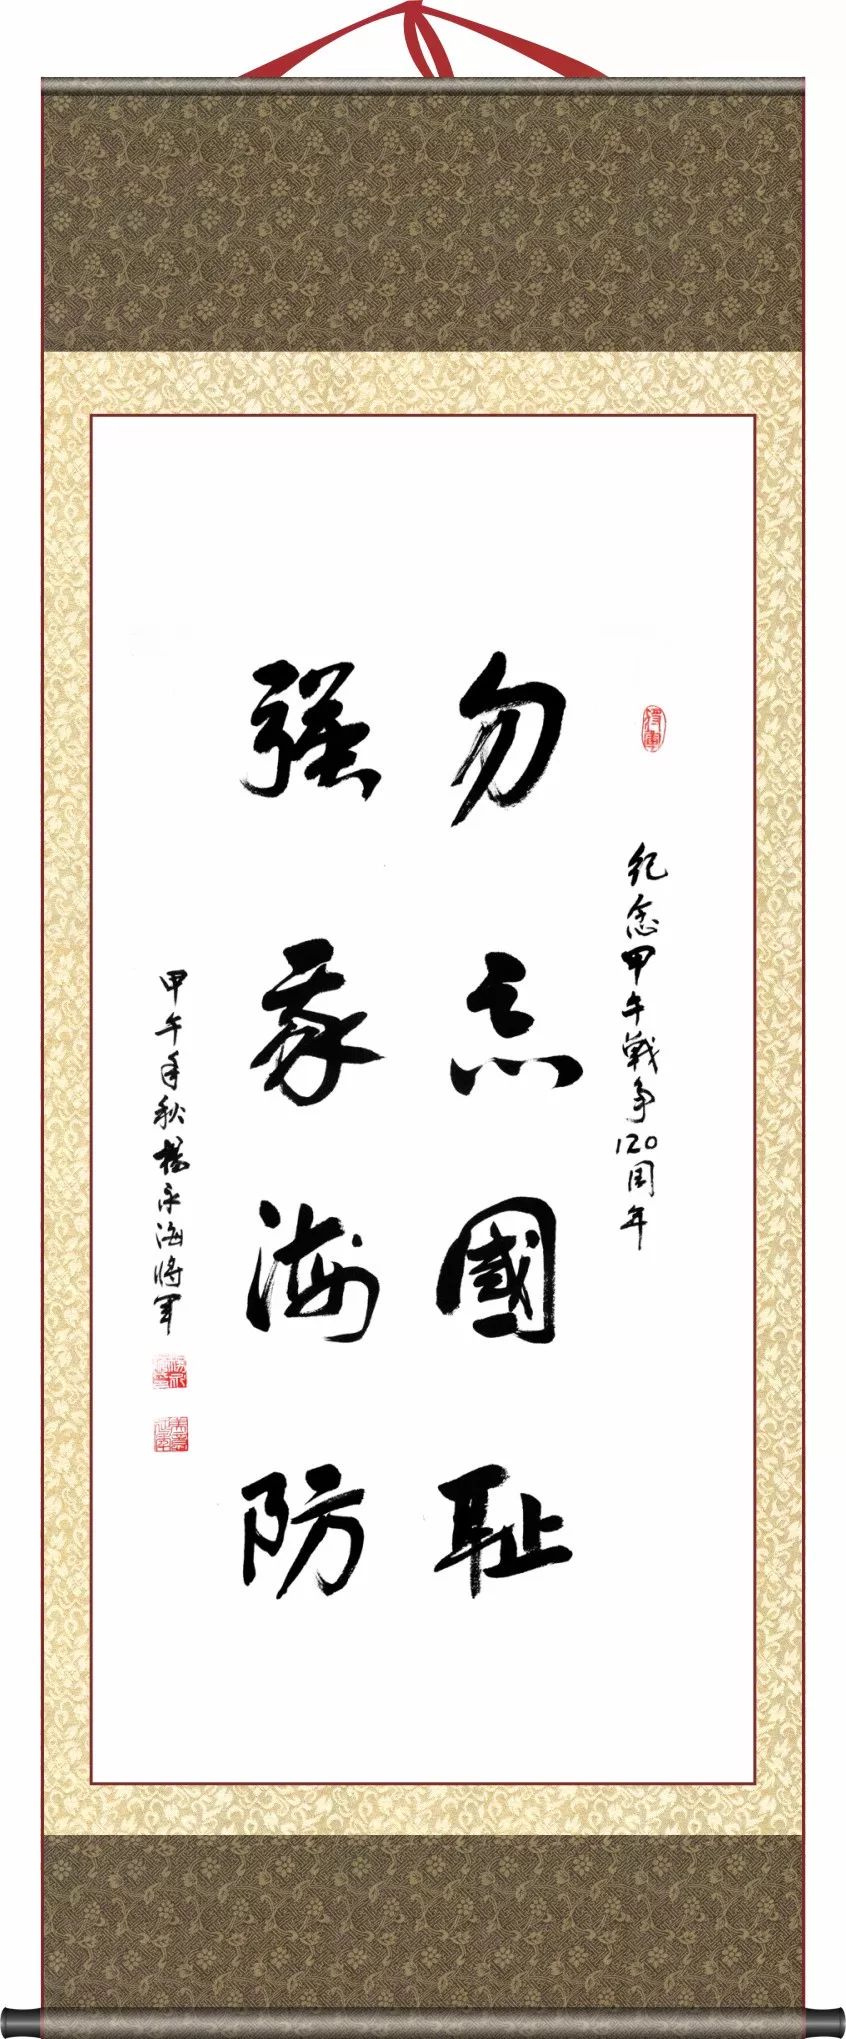 纪念甲午戰争120周年
勿忘國耻
强我海防
甲午年秋楊永海將軍